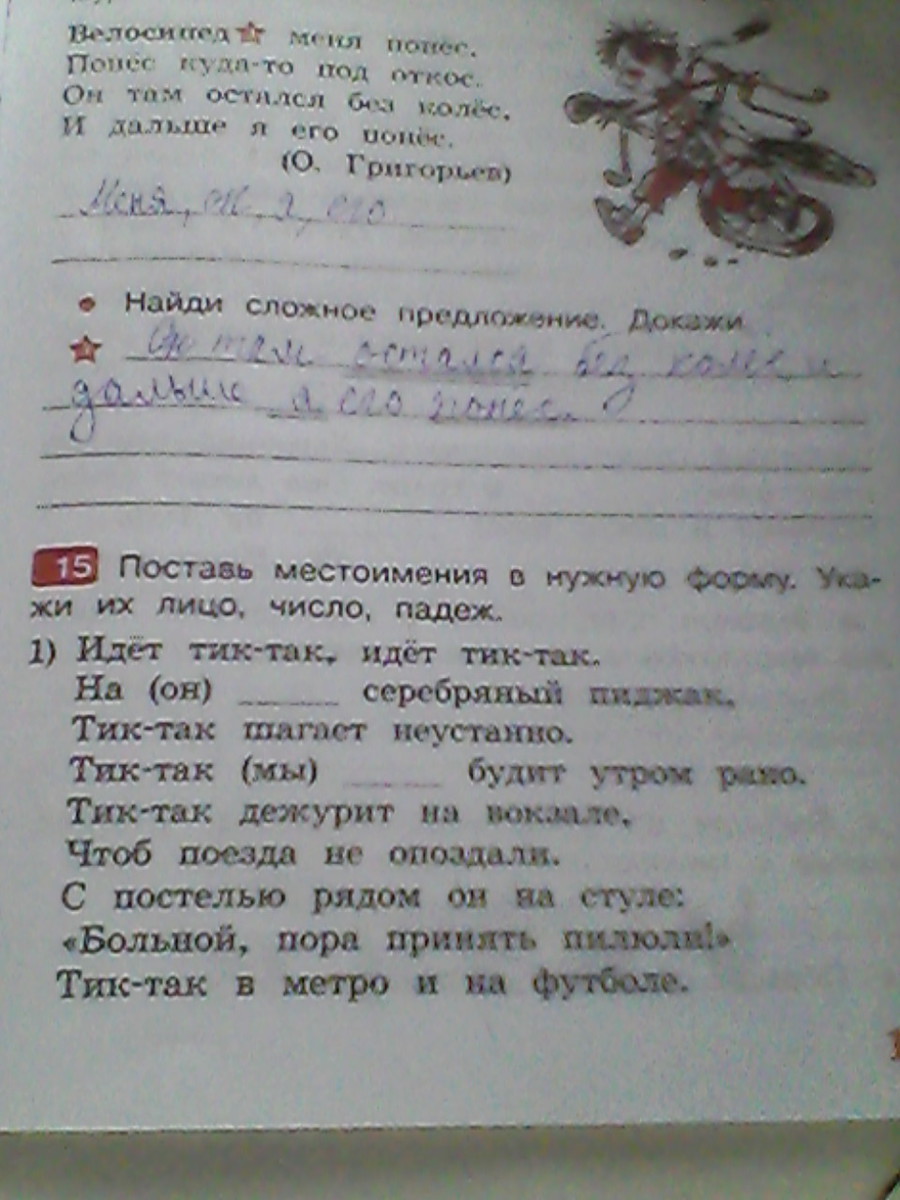 Велосипед меня понёс,
Понёс куда-то под откос.
Он там остался без колёс,
И дальше я его понёс.
(О. Григорьев)
Меня, он, я, его
• Найди сложное предложение. Докажи.
Он там остался без колес и
дальше я его понес.
15 Поставь местоимения в нужную форму. Ука-
жи их лицо, число, падеж.
1) Идёт тик-так, идёт тик-так.
На (он) ______ серебряный пиджак.
Тик-так шагает неустанно.
Тик-так (мы) ______ будит утром рано.
Тик-так дежурит на вокзале,
Чтоб поезда не опоздали.
С постелью рядом он на стуле:
«Больной, пора принять пилюли!»
Тик-так в метро и на футболе.